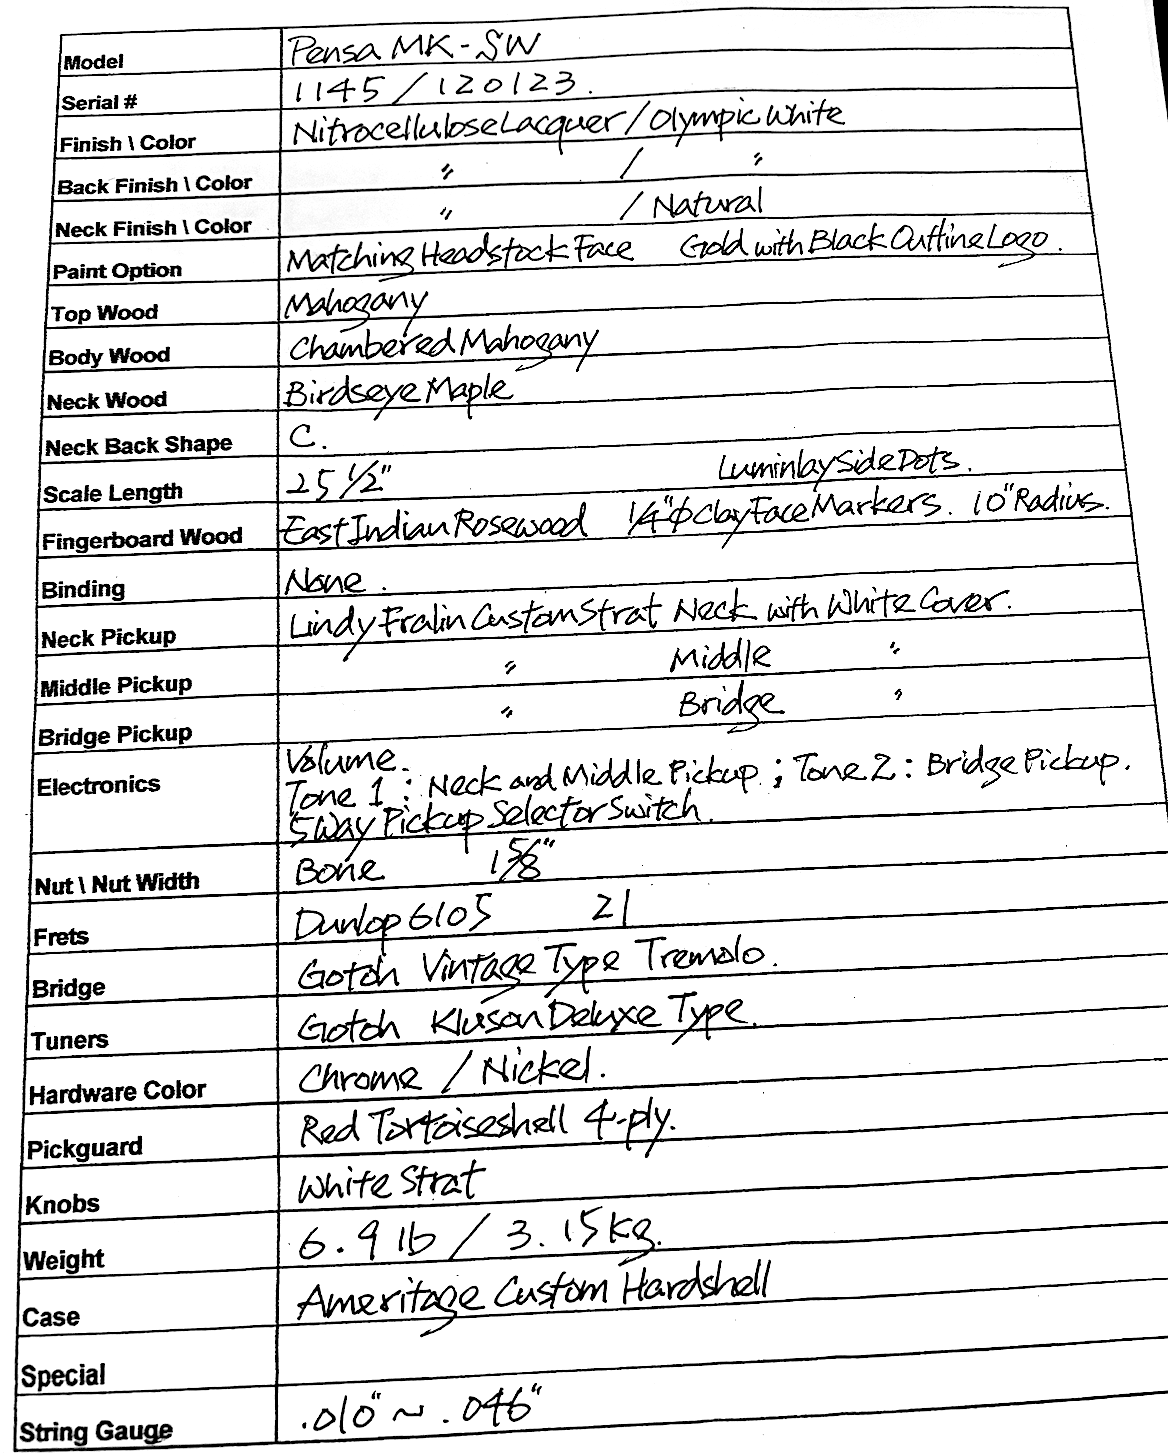 Model Pensa MK-SW
Serial # 1145 / 120123.
Finish \ Color Nitrocellulose Lacquer / Olympic White
Back Finish \ Color " / "
Neck Finish \ Color " / Natural
Paint Option Matching Headstock Face Gold with Black Outline Logo.
Top Wood Mahogany
Body Wood Chambered Mahogany
Neck Wood Birdseye Maple
Neck Back Shape C.
Scale Length 25 1/2" Luminlay Side Dots.
Fingerboard Wood East Indian Rosewood 1/4"φ Clay Face Markers. 10" Radius.
Binding None.
Neck Pickup Lindy Fralin Custom Strat Neck with White Cover.
Middle Pickup " Middle "
Bridge Pickup " Bridge "
Electronics Volume.
Tone 1 : Neck and Middle Pickup ; Tone 2 : Bridge Pickup.
5 Way Pickup Selector Switch.
Nut \ Nut Width Bone 1 5/8"
Frets Dunlop 6105 21
Bridge Gotoh Vintage Type Tremolo.
Tuners Gotoh Kluson Deluxe Type.
Hardware Color Chrome / Nickel.
Pickguard Red Tortoiseshell 4-ply.
Knobs White Strat
Weight 6.9 lb / 3.15 kg.
Case Ameritage Custom Hardshell
Special
String Gauge .010" ~ .046"